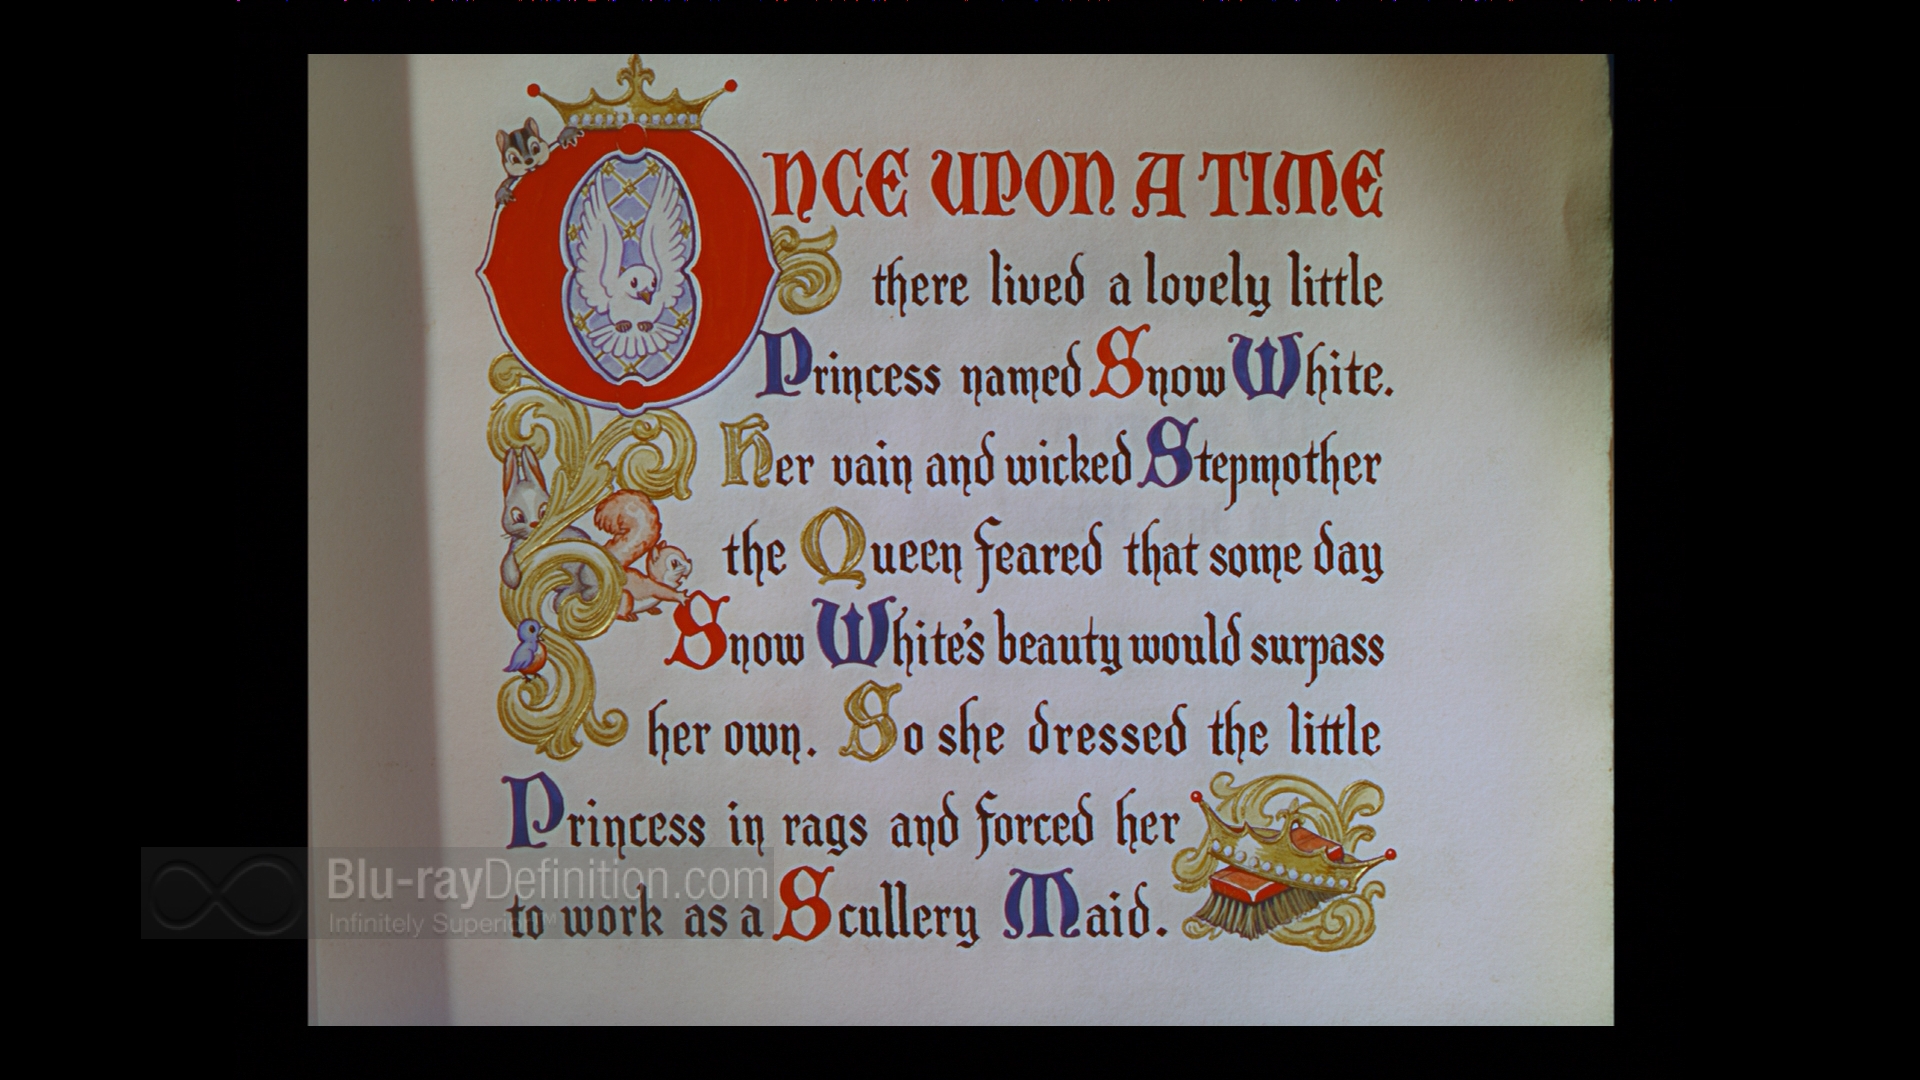 ONCE UPON A TIME
there lived a lovely little
Princess named Snow White.
Her vain and wicked Stepmother
the Queen feared that some day
Snow White's beauty would surpass
her own. So she dressed the little
Princess in rags and forced her
to work as a Scullery Maid.
Blu-rayDefinition.com
Infinitely Superior™